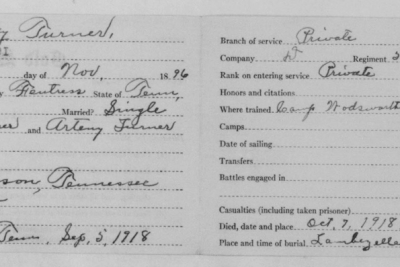 Turner,
day of Nov, 1896
Fentress State of Tenn,
Married? Single
and Arteny Turner
Tennessee
Tenn, Sep, 5, 1918
Branch of service Private
Company Regiment
Rank on entering service Private
Honors and citations
Where trained Camp Wodsworth
Camps
Date of sailing
Transfers
Battles engaged in
Casualties (including taken prisoner)
Died, date and place Oct, 7, 1918
Place and time of burial